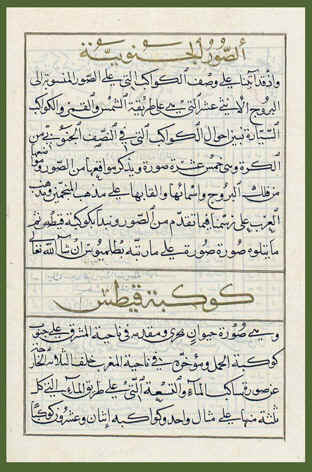 الصور الجنوبية
واذ قد اتينا على وصف الكواكب التي على الصور المنسوبة الى
البروج الاثني عشر التي هي على طريقة الشمس والقمر والكواكب
السيارة نبين احوال الكواكب التي في النصف الجنوبي من
الكرة وهي خمس عشرة صورة ونذكر مواقعها من الصور وسمتها
من فلك البروج واسمائها والقابها على مذهب المنجمين ومذهب
العرب على رسمنا فيما تقدم من الصور ونبدأ بكوكبة قيطس ثم
ما يتلوه صورة صورة على ما رتبه بطلميوس ان شا الله تعالى
كوكبة قيطس
وهي صورة حيوان بحري ومقدمه في ناحية المشرق على جنوب
كوكبة الحمل ومؤخره في ناحية المغرب خلف الثلاثة الخارجة
عن صورة ساكب الماء والتسعة التي على طريق الماء التي كل
ثلثة منها على مثال واحد وكواكبه اثنان وعشرون كوكبا